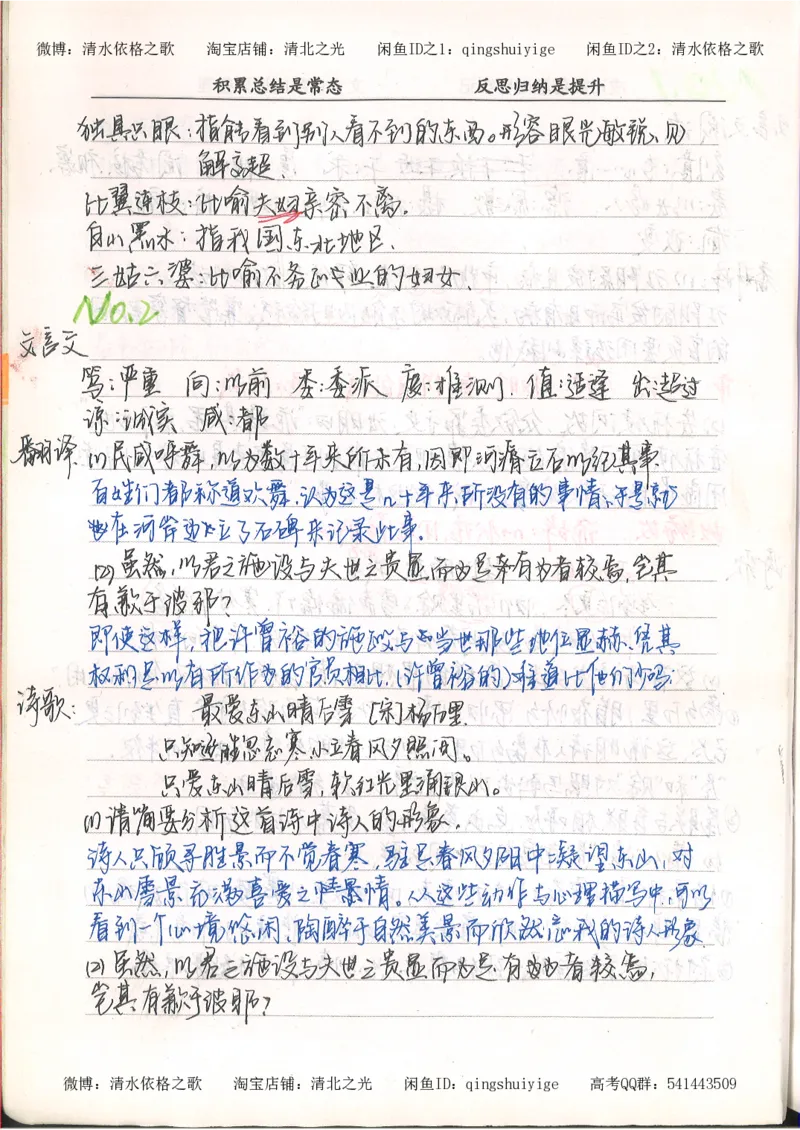 微博：清水依格之歌 淘宝店铺：清北之光 闲鱼ID之1：qingshuiyige 闲鱼ID之2：清水依格之歌
积累总结是常态 反思归纳是提升
独具只眼：指能看到别人看不到的东西。形容眼光敏锐、见
解高超.
比翼连枝：比喻夫妇亲密不离.
白山黑水：指我国东北地区.
三姑六婆：比喻不务正业的妇女.
No.2
文言文
笃：严重 向：以前 委：委派 度：推测. 值：适逢 出：超过
谅：诚实 咸：都
翻译 (1)民咸呼舞，以为数十年来所未有，因即河漘立石以纪其事.
百姓们都称道欢舞，认为这是几十年来所没有的事情，于是就
在河岸边立了石碑来记录此事.
(2)虽然，以君之施设与夫世之贵显而为足有为者较焉，岂其
有歉于彼邪？
即使这样，把许曾裕的施设与当世那些地位显赫、凭其
权利足以有所作为的官员相比，(许曾裕的)难道比他们少吗?
诗歌： 最爱东山晴后雪 [宋]杨万里.
只知逐胜忽忘寒，小立春风夕照间。
只爱东山晴后雪，软红光里涌银山。
(1)请简要分析这首诗中诗人的形象.
诗人只顾寻胜景而不觉春寒，驻足春风夕阳中凝望东山，对
东山雪景充满喜爱之情。从这些动作与心理描写中，可以
看到一个心境悠闲、陶醉于自然美景而欣然忘我的诗人形象.
(2)虽然，以君之施设与夫世之贵显而为足有为者较焉，
岂其有歉于彼邪？
微博：清水依格之歌 淘宝店铺：清北之光 闲鱼ID：qingshuiyige 高考QQ群：541443509